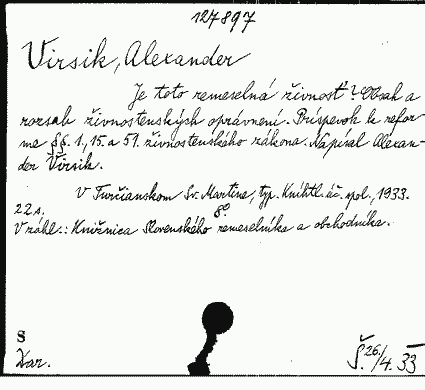 127897
Virsik, Alexander
Je toto remeselná živnosť? Obsah a
rozsah živnostenských oprávnení. Príspevok k refor-
me §§. 1., 15. a 51. živnostenského zákona. Napísal Alexan-
der Viršik.
V Turčianskom Sv. Martine, typ. Knihtl. úč. spol., 1933.
22 s. 8°
V záhl.: Knižnica Slovenského remeselníka a obchodníka.
S
Var.
Š. 26/4. 33